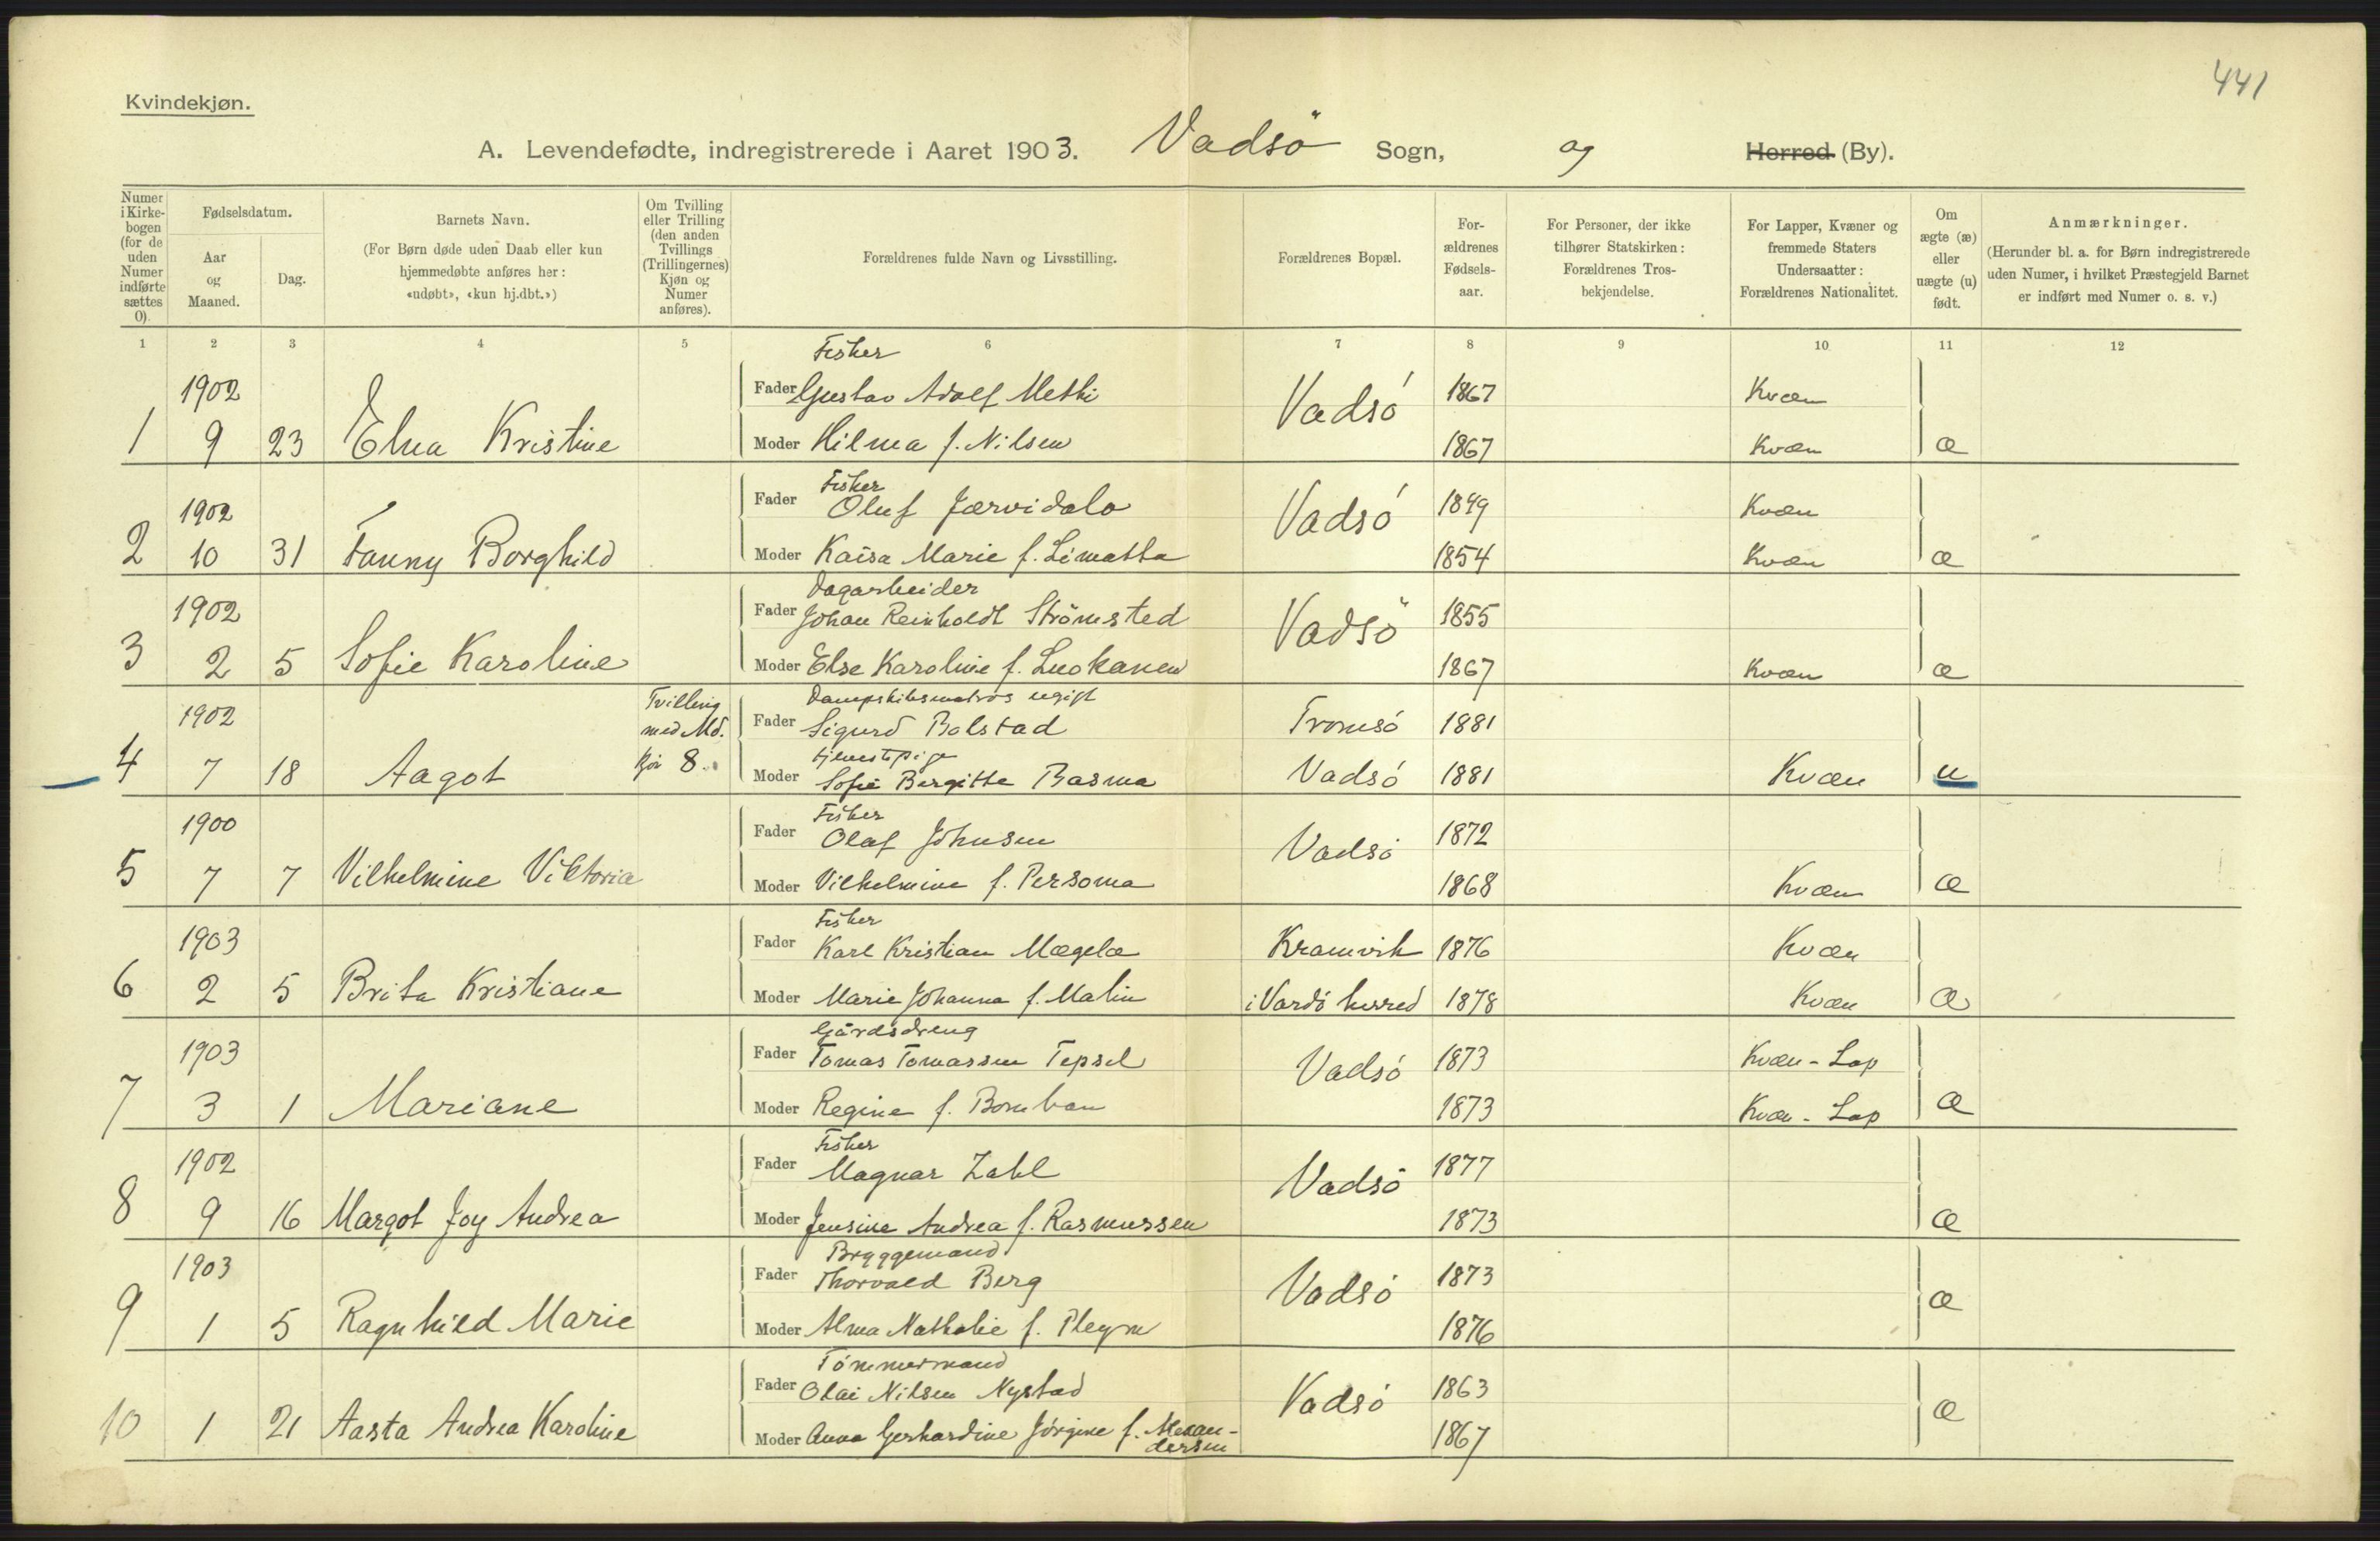 441
Kvindekjøn.
A. Levendefødte, indregistrerede i Aaret 1903. Vadsö Sogn, og Herred (By).
Numer i Kirke-bogen (for de uden Numer indførte sættes 0).
Fødselsdatum.
Aar og Maaned.
Dag.
Barnets Navn.
(For Børn døde uden Daab eller kun hjemmedøbte anføres her: «udøbt», «kun hj.dbt.»)
Om Tvilling eller Trilling (den anden Tvillings (Trillingernes) Kjøn og Numer anføres).
Forældrenes fulde Navn og Livsstilling.
Forældrenes Bopæl.
For-ældrenes Fødsels-aar.
For Personer, der ikke tilhører Statskirken: Forældrenes Tros-bekjendelse.
For Lapper, Kvæner og fremmede Staters Undersaatter: Forældrenes Nationalitet.
Om ægte (æ) eller uægte (u) født.
Anmærkninger.
(Herunder bl. a. for Børn indregistrerede uden Numer, i hvilket Præstegjeld Barnet er indført med Numer o. s. v.)
1 2 3 4 5 6 7 8 9 10 11 12
Fisker
1902 Fader Gustav Adolf Metti Vadsó 1867 Kvæn
1 9 23 Elna Kristine Moder Hilma f. Nilsen 1867 Kvæn æ
Fisker
1902 Fader Oluf Jærvidalo Vadsó 1849 Kvæn
2 10 31 Fanny Borghild Moder Kaisa Marie f. Limatta 1854 Kvæn æ
Dagarbeider
1902 Fader Johan Reinholdt Strömsted Vadsö 1855
3 2 5 Sofie Karoline Moder Else Karoline f. Luokanen 1867 Kvæn æ
Tvilling Dampskibsmatros ugift
1902 med Md. Fader Sigurd Bolstad Tromsó 1881
Tjenestepige
4 7 18 Aagot kjön 8. Moder Sofie Bergitte Basma Vadsó 1881 Kvæn u
Fisker
1900 Fader Olaf Johnsen Vadsó 1872
5 7 7 Vilhelmine Viktoria Moder Vilhelmine f. Persoma 1868 Kvæn æ
Fisker
1903 Fader Karl Kristian Mægelæ Kramvik 1876 Kvæn
6 2 5 Brita Kristiane Moder Marie Johanna f. Malin i Vardó herred 1878 Kvæn æ
Gårdsdreng
1903 Fader Tomas Tomassen Tepsel Vadsó 1873 Kvæn - Lap
7 3 1 Mariane Moder Regine f. Bomban 1873 Kvæn - Lap æ
Fisker
1902 Fader Magnar Zahl Vadsó 1877
8 9 16 Margot Joy Andrea Moder Jensine Andrea f. Rasmussen 1873 æ
Bryggemand
1903 Fader Thorvald Berg Vadsó 1873
9 1 5 Ragnhild Marie Moder Alma Nathalie f. Pleym 1876 æ
Tömmermand
Fader Olai Nilsen Nystad Vadsó 1863
10 1 21 Aasta Andrea Karoline Moder Anna Gerhardine Jörgine f. Alexan-dersen 1867 æ